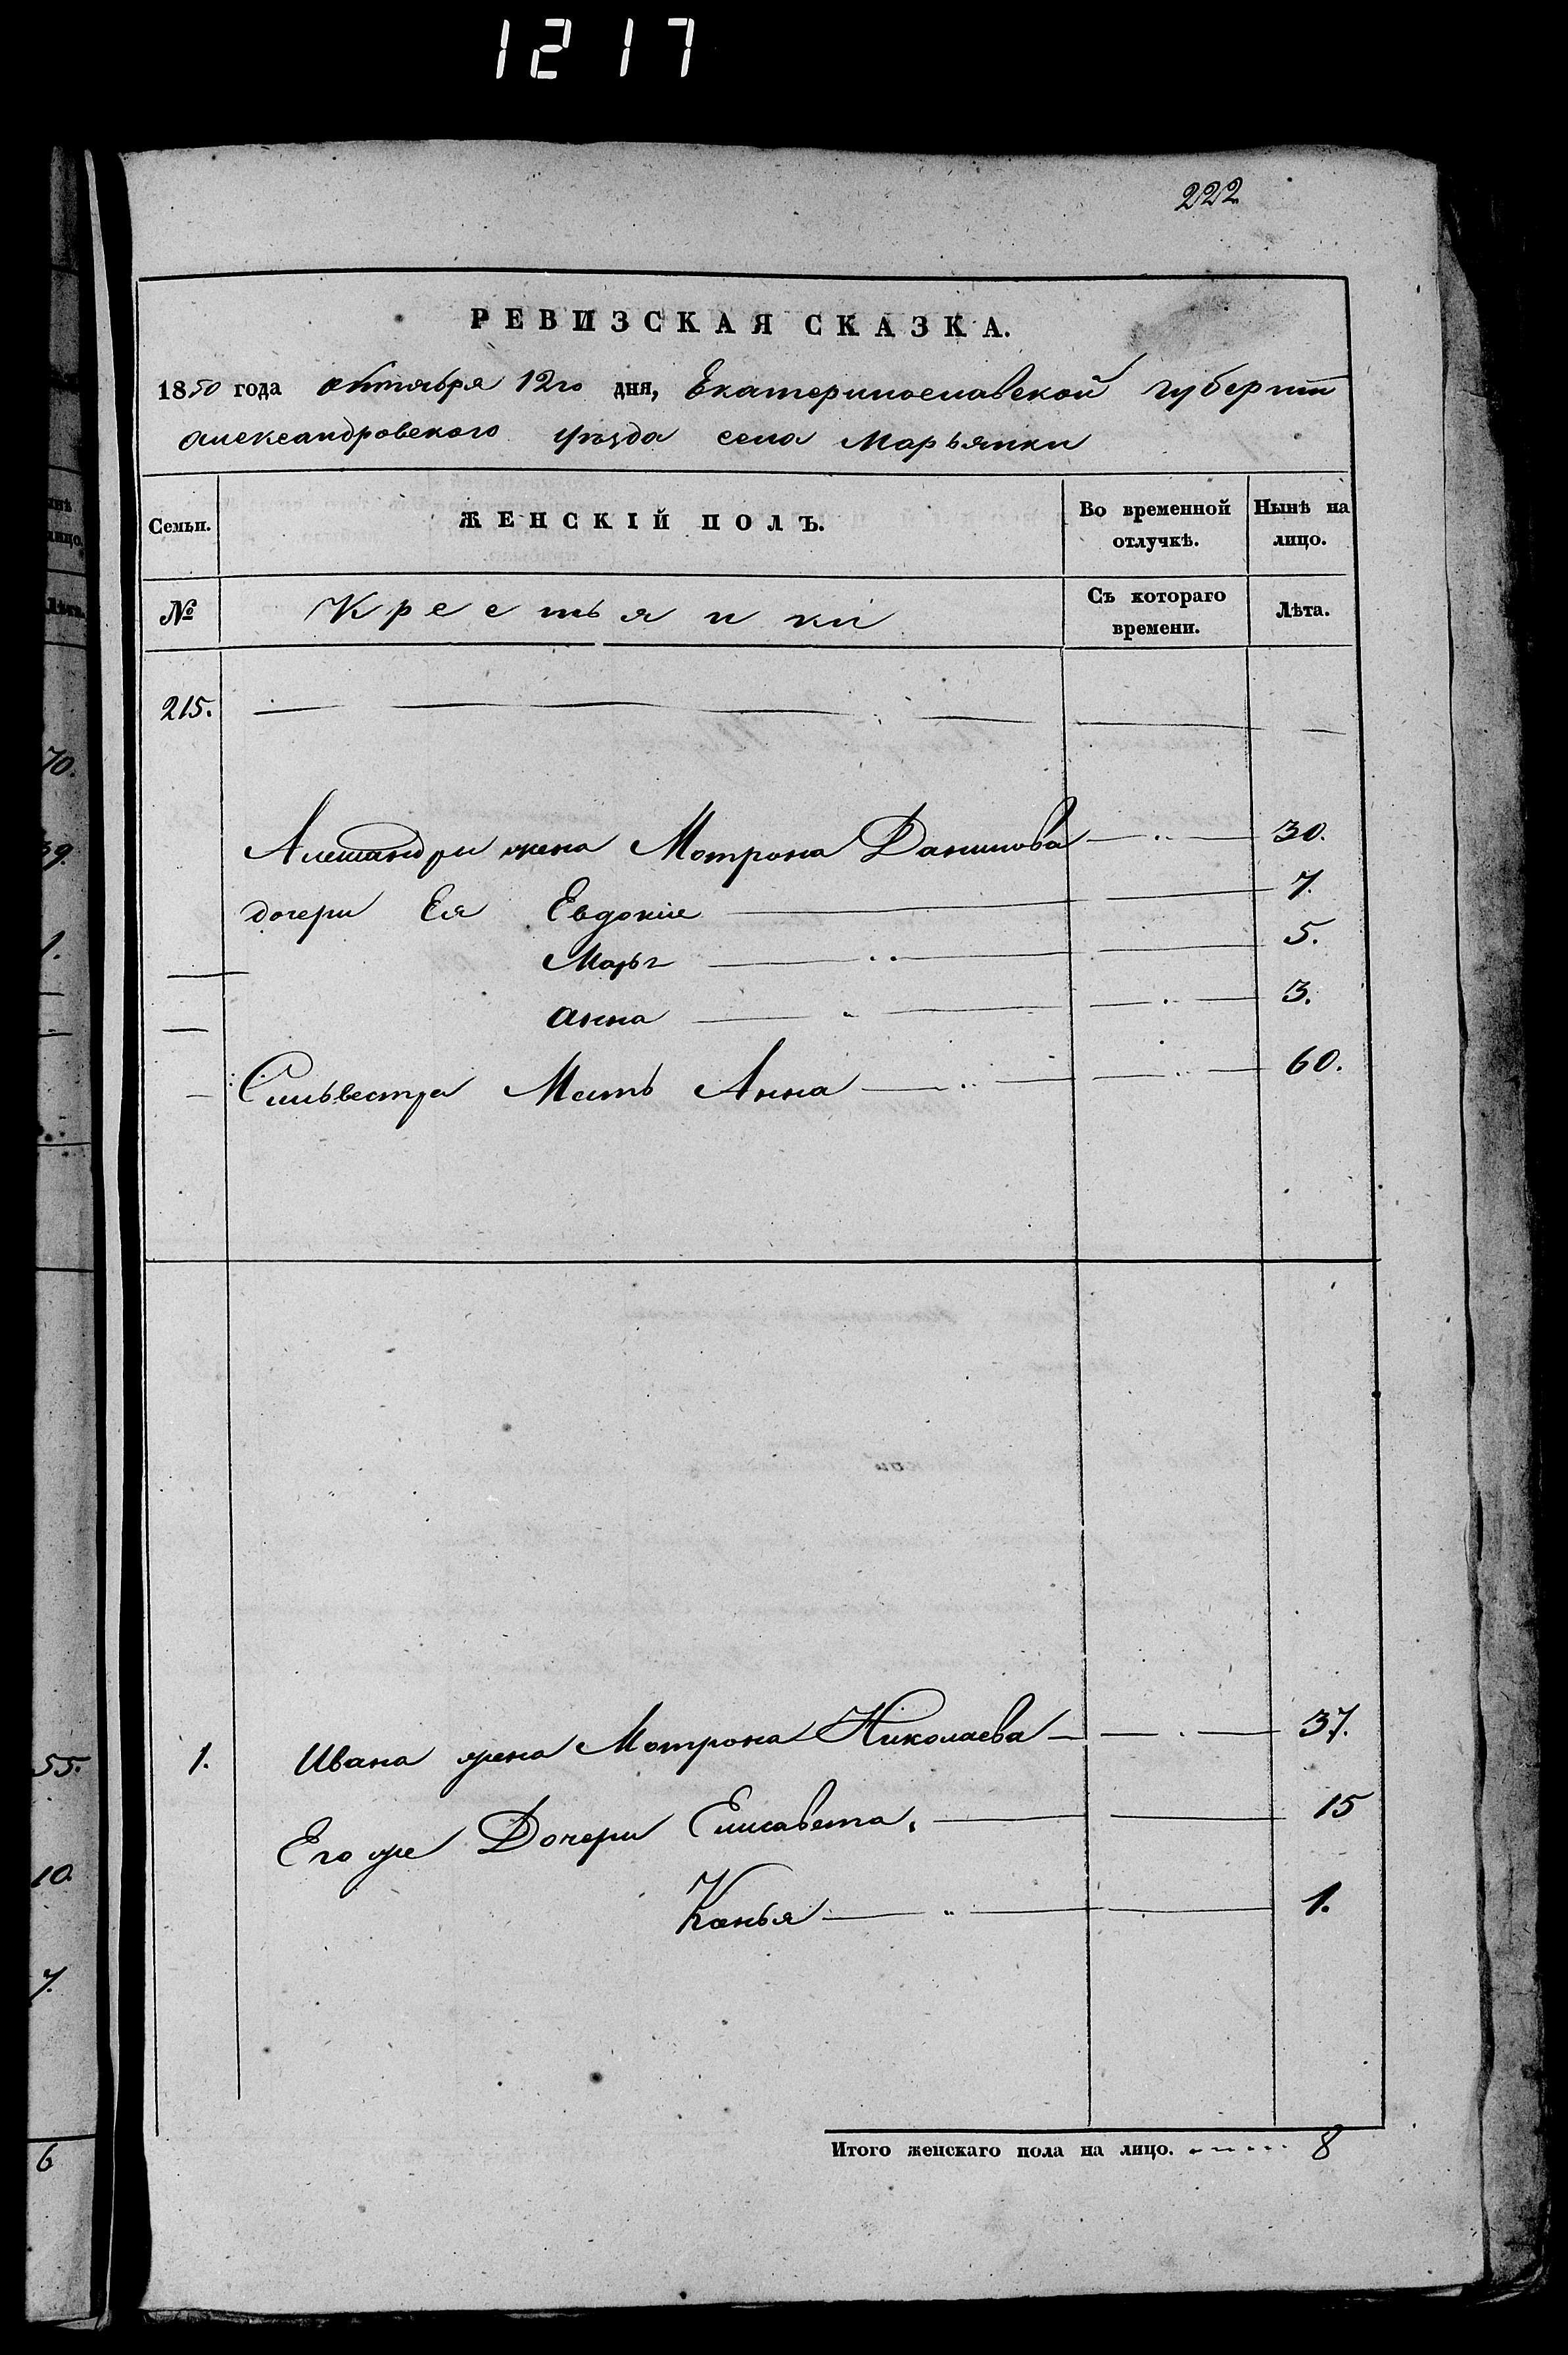 1217
222
РЕВИЗСКАЯ СКАЗКА.
1850 года октября 12го дня, Екатеринославской губерніи
Александровского уѣзда села Марьянки
Семьи. ЖЕНСКІЙ ПОЛЪ. Во временной отлучкѣ. Нынѣ на лицо.
№ Крестьянки Съ котораго времени. Лѣта.
215.
жена Мотрона Данилова 30.
дочери Ея Евдокія 7.
Марья 5.
Анна 3.
Сильвестра Мать Анна 60.
1. Ивана жена Мотрона Николаева 37.
Его же Дочери Елисавета. 15
1.
Итого женскаго пола на лицо. 8
70.
39.
1.
55.
10.
7.
6